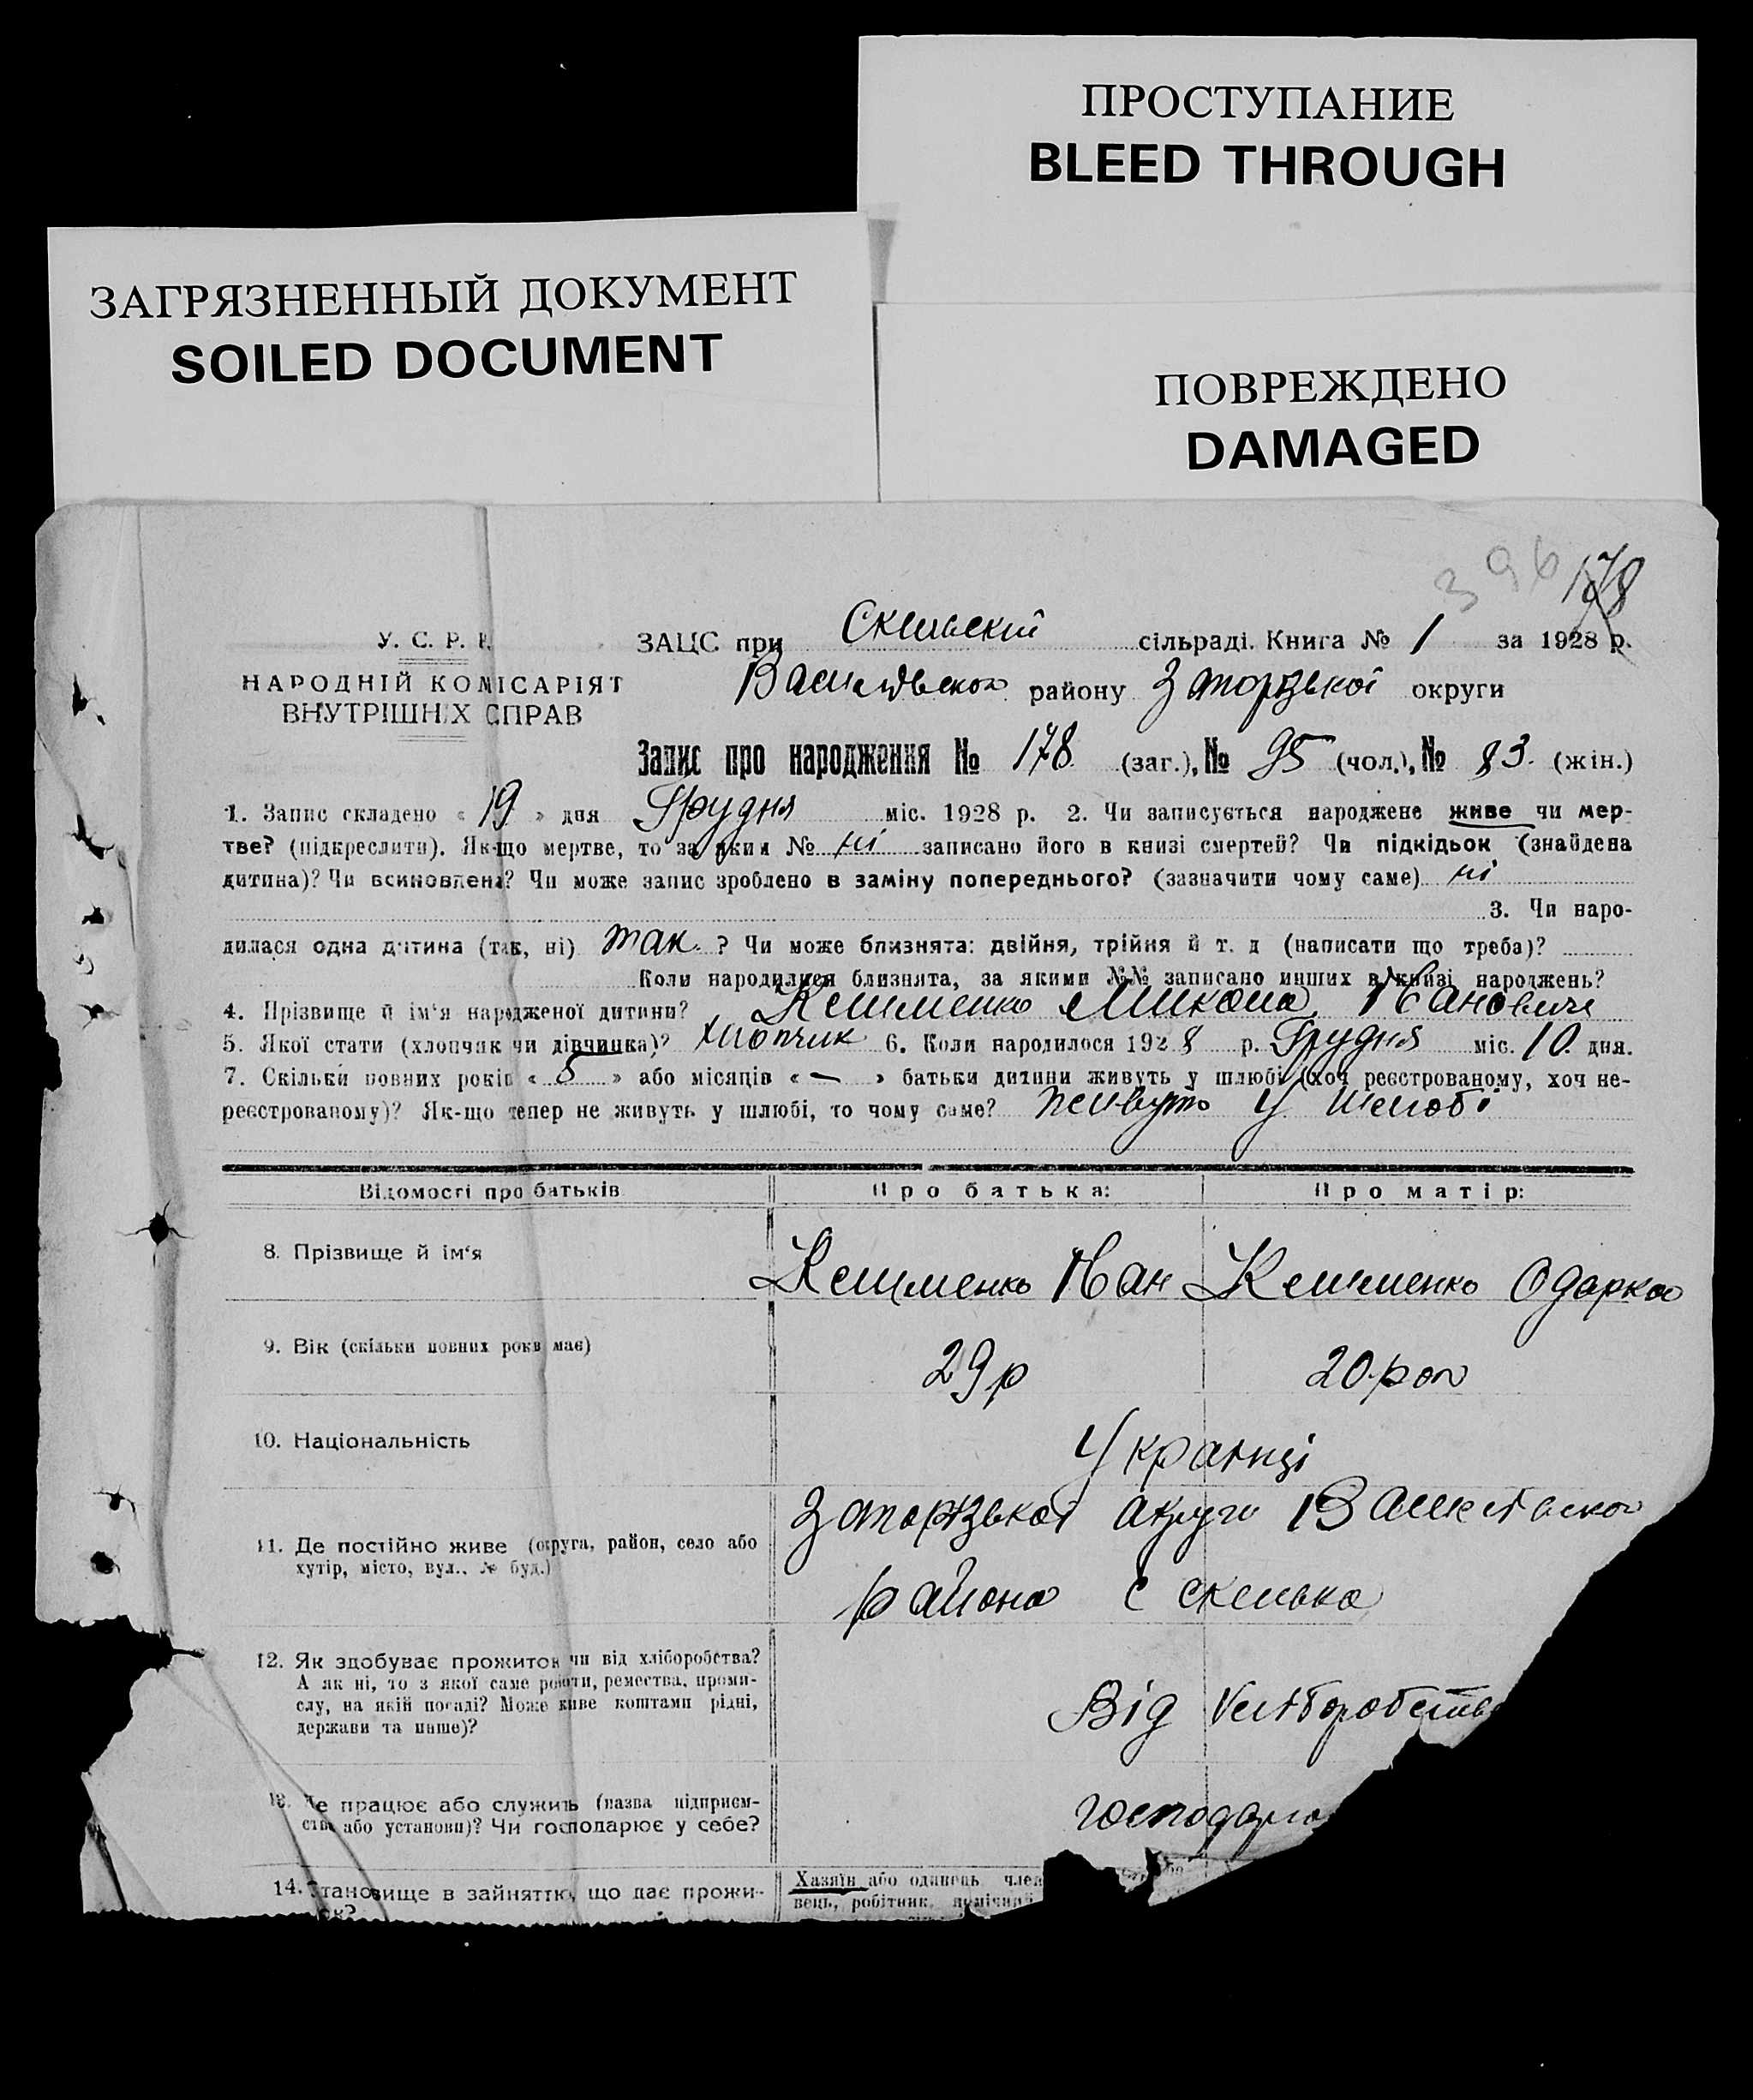 ПРОСТУПАНИЕ
BLEED THROUGH
ЗАГРЯЗНЕННЫЙ ДОКУМЕНТ
SOILED DOCUMENT
ПОВРЕЖДЕНО
DAMAGED
396 178
У. С. Р. Р.
НАРОДНІЙ КОМІСАРІЯТ
ВНУТРІШНІХ СПРАВ
ЗАЦС при Скельскій сільраді. Книга № 1 за 1928 р.
Василівскої району Запорізької округи
Запис про народження № 178 (заг.), № 95 (чол.), № 83. (жін.)
1. Запис складено « 19 » дня Грудня міс. 1928 р. 2. Чи записується народжене живе чи мер-
тве? (підкреслити). Як-що мертве, то за яким № ні записано його в книзі смертей? Чи підкідьок (знайдена
дитина)? Чи всиновлена? Чи може запис зроблено в заміну попереднього? (зазначити чому саме) ні
3. Чи наро-
дилася одна дитина (так, ні) так ? Чи може близнята: двійня, трійня й т. д (написати що треба)?
Коли народилися близнята, за якими №№ записано инших в книзі народжень?
4. Прізвище й ім'я народженої дитини? Клименко Микола Іванович
5. Якої стати (хлопчик чи дівчинка)? хлопчик 6. Коли народилося 1928 р. Грудня міс. 10. дня.
7. Скільки повних років « 5 » або місяців « — » батьки дитини живуть у шлюбі (хоч реєстрованому, хоч не-
реєстрованому)? Як-що тепер не живуть у шлюбі, то чому саме? живуть У шлюбі
Відомості про батьків
Про батька:
Про матір:
8. Прізвище й ім'я
Клименко Іван
Клименко Одарка
9. Вік (скільки повних років має)
29 р
20 рок
10. Національність
Українці
11. Де постійно живе (округа, район, село або
хутір, місто, вул., № буд.)
Запорізької округи Василівскої
района с скелька
12. Як здобуває прожиток чи від хліборобства?
А як ні, то з якої саме роботи, ремества, проми-
слу, на якій посаді? Може живе коштами рідні,
держави та инше)?
Від хліборобства
13. Де працює або служить (назва підприєм-
ства або установи)? Чи господарює у себе?
14. Становище в зайняттю, що дає прожи-
Хазяїн або одинець член
вець, робітник,